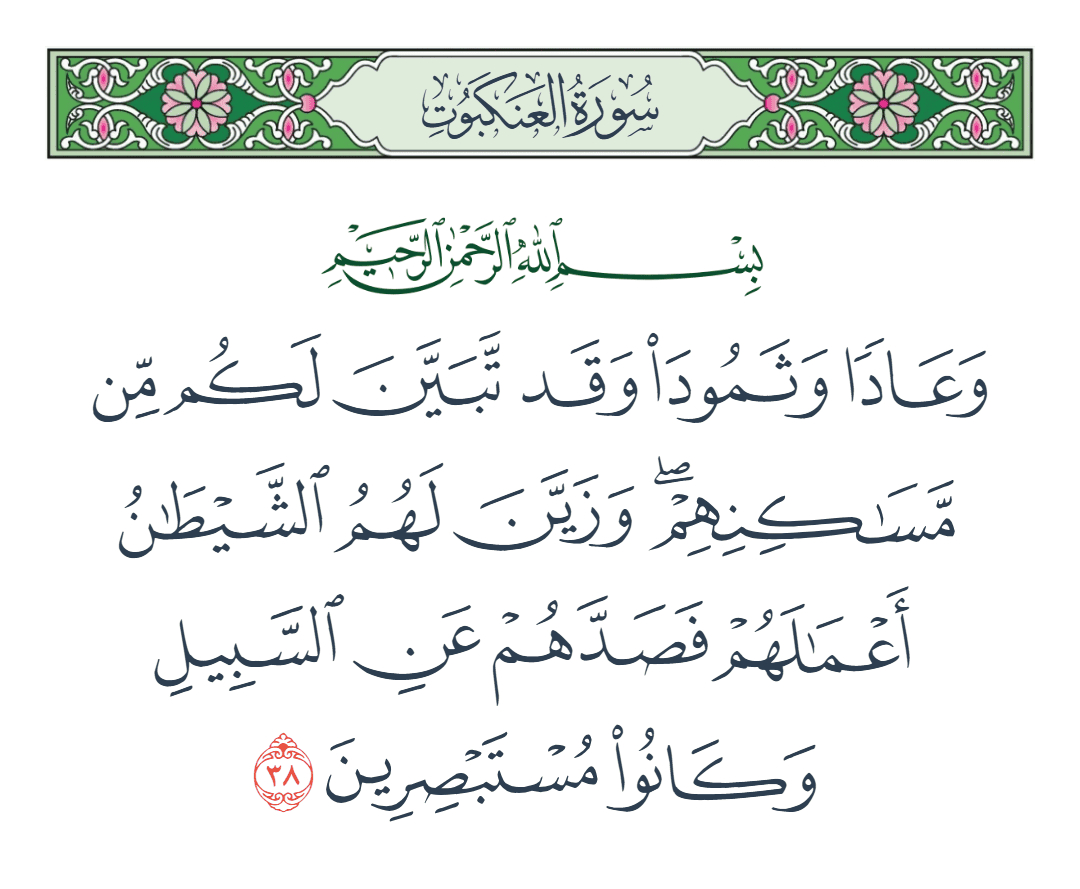 سُورَةُ العَنكَبُوتِ
بِسْمِ ٱللَّهِ ٱلرَّحْمَٰنِ ٱلرَّحِيمِ
وَعَادًا وَثَمُودَا۟ وَقَد تَّبَيَّنَ لَكُم مِّن
مَّسَـٰكِنِهِمْ ۖ وَزَيَّنَ لَهُمُ ٱلشَّيْطَـٰنُ
أَعْمَـٰلَهُمْ فَصَدَّهُمْ عَنِ ٱلسَّبِيلِ
وَكَانُوا۟ مُسْتَبْصِرِينَ ٣٨